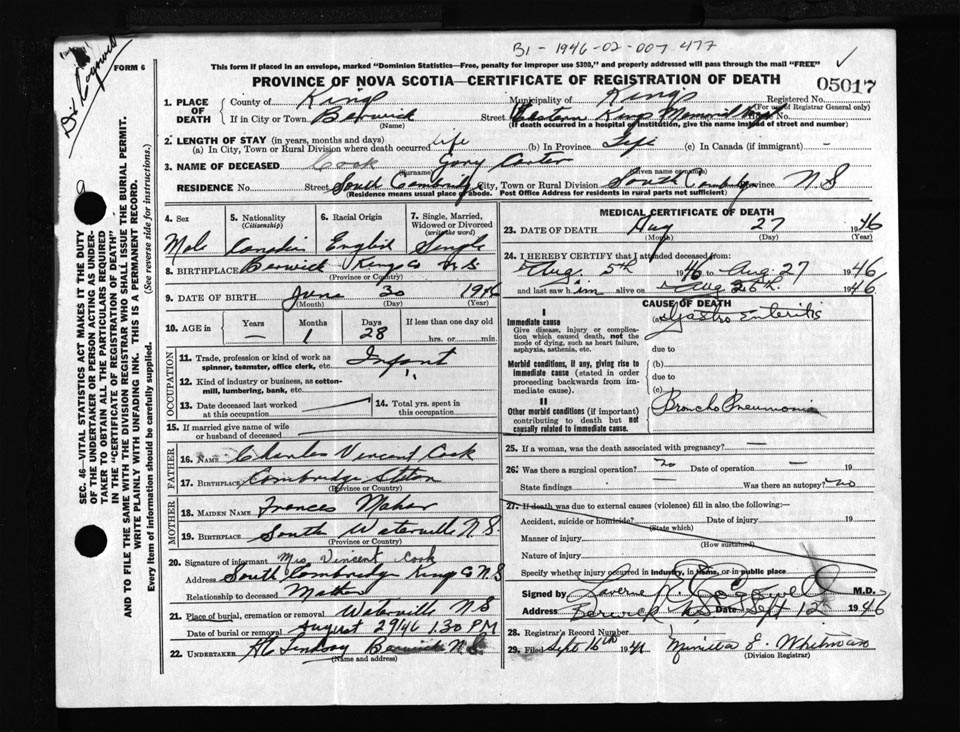 B1 - 1946-02-007-477
FORM 6
This form if placed in an envelope, marked "Dominion Statistics—Free, penalty for improper use $300," and properly addressed will pass through the mail "FREE"
PROVINCE OF NOVA SCOTIA—CERTIFICATE OF REGISTRATION OF DEATH
05017
1. PLACE OF DEATH County of Kings Municipality of Kings Registered No.
(For use of Registrar General only)
If in City or Town Berwick Street Western Kings Memorial
(Name) (If death occurred in a hospital or institution, give the name instead of street and number)
2. LENGTH OF STAY (in years, months and days)
(a) In City, Town or Rural Division where death occurred life (b) In Province Life (c) In Canada (if immigrant) -
3. NAME OF DECEASED Cook Gary Carter
(Surname) (Given name or names)
RESIDENCE No. Street South Cambridge City, Town or Rural Division South Cambridge Province N S
(Residence means usual place of abode. Post Office Address for residents in rural parts not sufficient)
4. Sex Male
5. Nationality (Citizenship) Canadian
6. Racial Origin English
7. Single, Married, Widowed or Divorced (write the word) Single
8. BIRTHPLACE Berwick Kings Co N.S.
(Province or Country)
9. DATE OF BIRTH June 30 1946
(Month) (Day) (Year)
10. AGE in Years — Months 1 Days 28 If less than one day old hrs. or min.
OCCUPATION
11. Trade, profession or kind of work as spinner, teamster, office clerk, etc. Infant
12. Kind of industry or business, as cotton-mill, lumbering, bank, etc. "
13. Date deceased last worked at this occupation
14. Total yrs. spent in this occupation
15. If married give name of wife or husband of deceased
FATHER
16. NAME Charles Vincent Cook
17. BIRTHPLACE Cambridge Station
(Province or Country)
MOTHER
18. MAIDEN NAME Frances Maher
19. BIRTHPLACE South Waterville N.S.
(Province or Country)
20. Signature of informant Mrs Vincent Cook
Address South Cambridge Kings Co N.S
Relationship to deceased Mother
21. Place of burial, cremation or removal Waterville N.S
Date of burial or removal August 29/46 1.30 PM
22. UNDERTAKER Lindsay Berwick N.S.
(Name and address)
MEDICAL CERTIFICATE OF DEATH
23. DATE OF DEATH Aug 27 1946
(Month) (Day) (Year)
24. I HEREBY CERTIFY that I attended deceased from:
Aug. 5th 1946 to Aug. 27 1946
and last saw him alive on Aug 26th. 1946
CAUSE OF DEATH
I
Immediate cause
Give disease, injury or complication which caused death, not the mode of dying, such as heart failure, asphyxia, asthenia, etc.
(a) Gastro Enteritis
due to
Morbid conditions, if any, giving rise to immediate cause (stated in order proceeding backwards from immediate cause).
(b)
due to
(c)
II
Other morbid conditions (if important) contributing to death but not causally related to immediate cause.
Broncho Pneumonia
25. If a woman, was the death associated with pregnancy? —
26. Was there a surgical operation? no Date of operation — 19
State findings — Was there an autopsy? no
27. If death was due to external causes (violence) fill in also, the following:—
Accident, suicide or homicide? Date of injury 19
(State which)
Manner of injury
(How sustained)
Nature of injury
Specify whether injury occurred in industry, in home, or in public place
Signed by Laverne R. Cogswell M.D.
Address Berwick N.S. Date Sept 12 1946
28. Registrar's Record Number
29. Filed Sept 16th 19 E. Whitman
(Division Registrar)
SEC. 46—VITAL STATISTICS ACT MAKES IT THE DUTY OF THE UNDERTAKER OR PERSON ACTING AS UNDERTAKER TO OBTAIN ALL THE PARTICULARS REQUIRED IN THE "CERTIFICATE OF REGISTRATION OF DEATH" AND TO FILE THE SAME WITH THE DIVISION REGISTRAR WHO SHALL ISSUE THE BURIAL PERMIT.
WRITE PLAINLY WITH UNFADING INK. THIS IS A PERMANENT RECORD.
Every item of information should be carefully supplied. (See reverse side for instructions.)